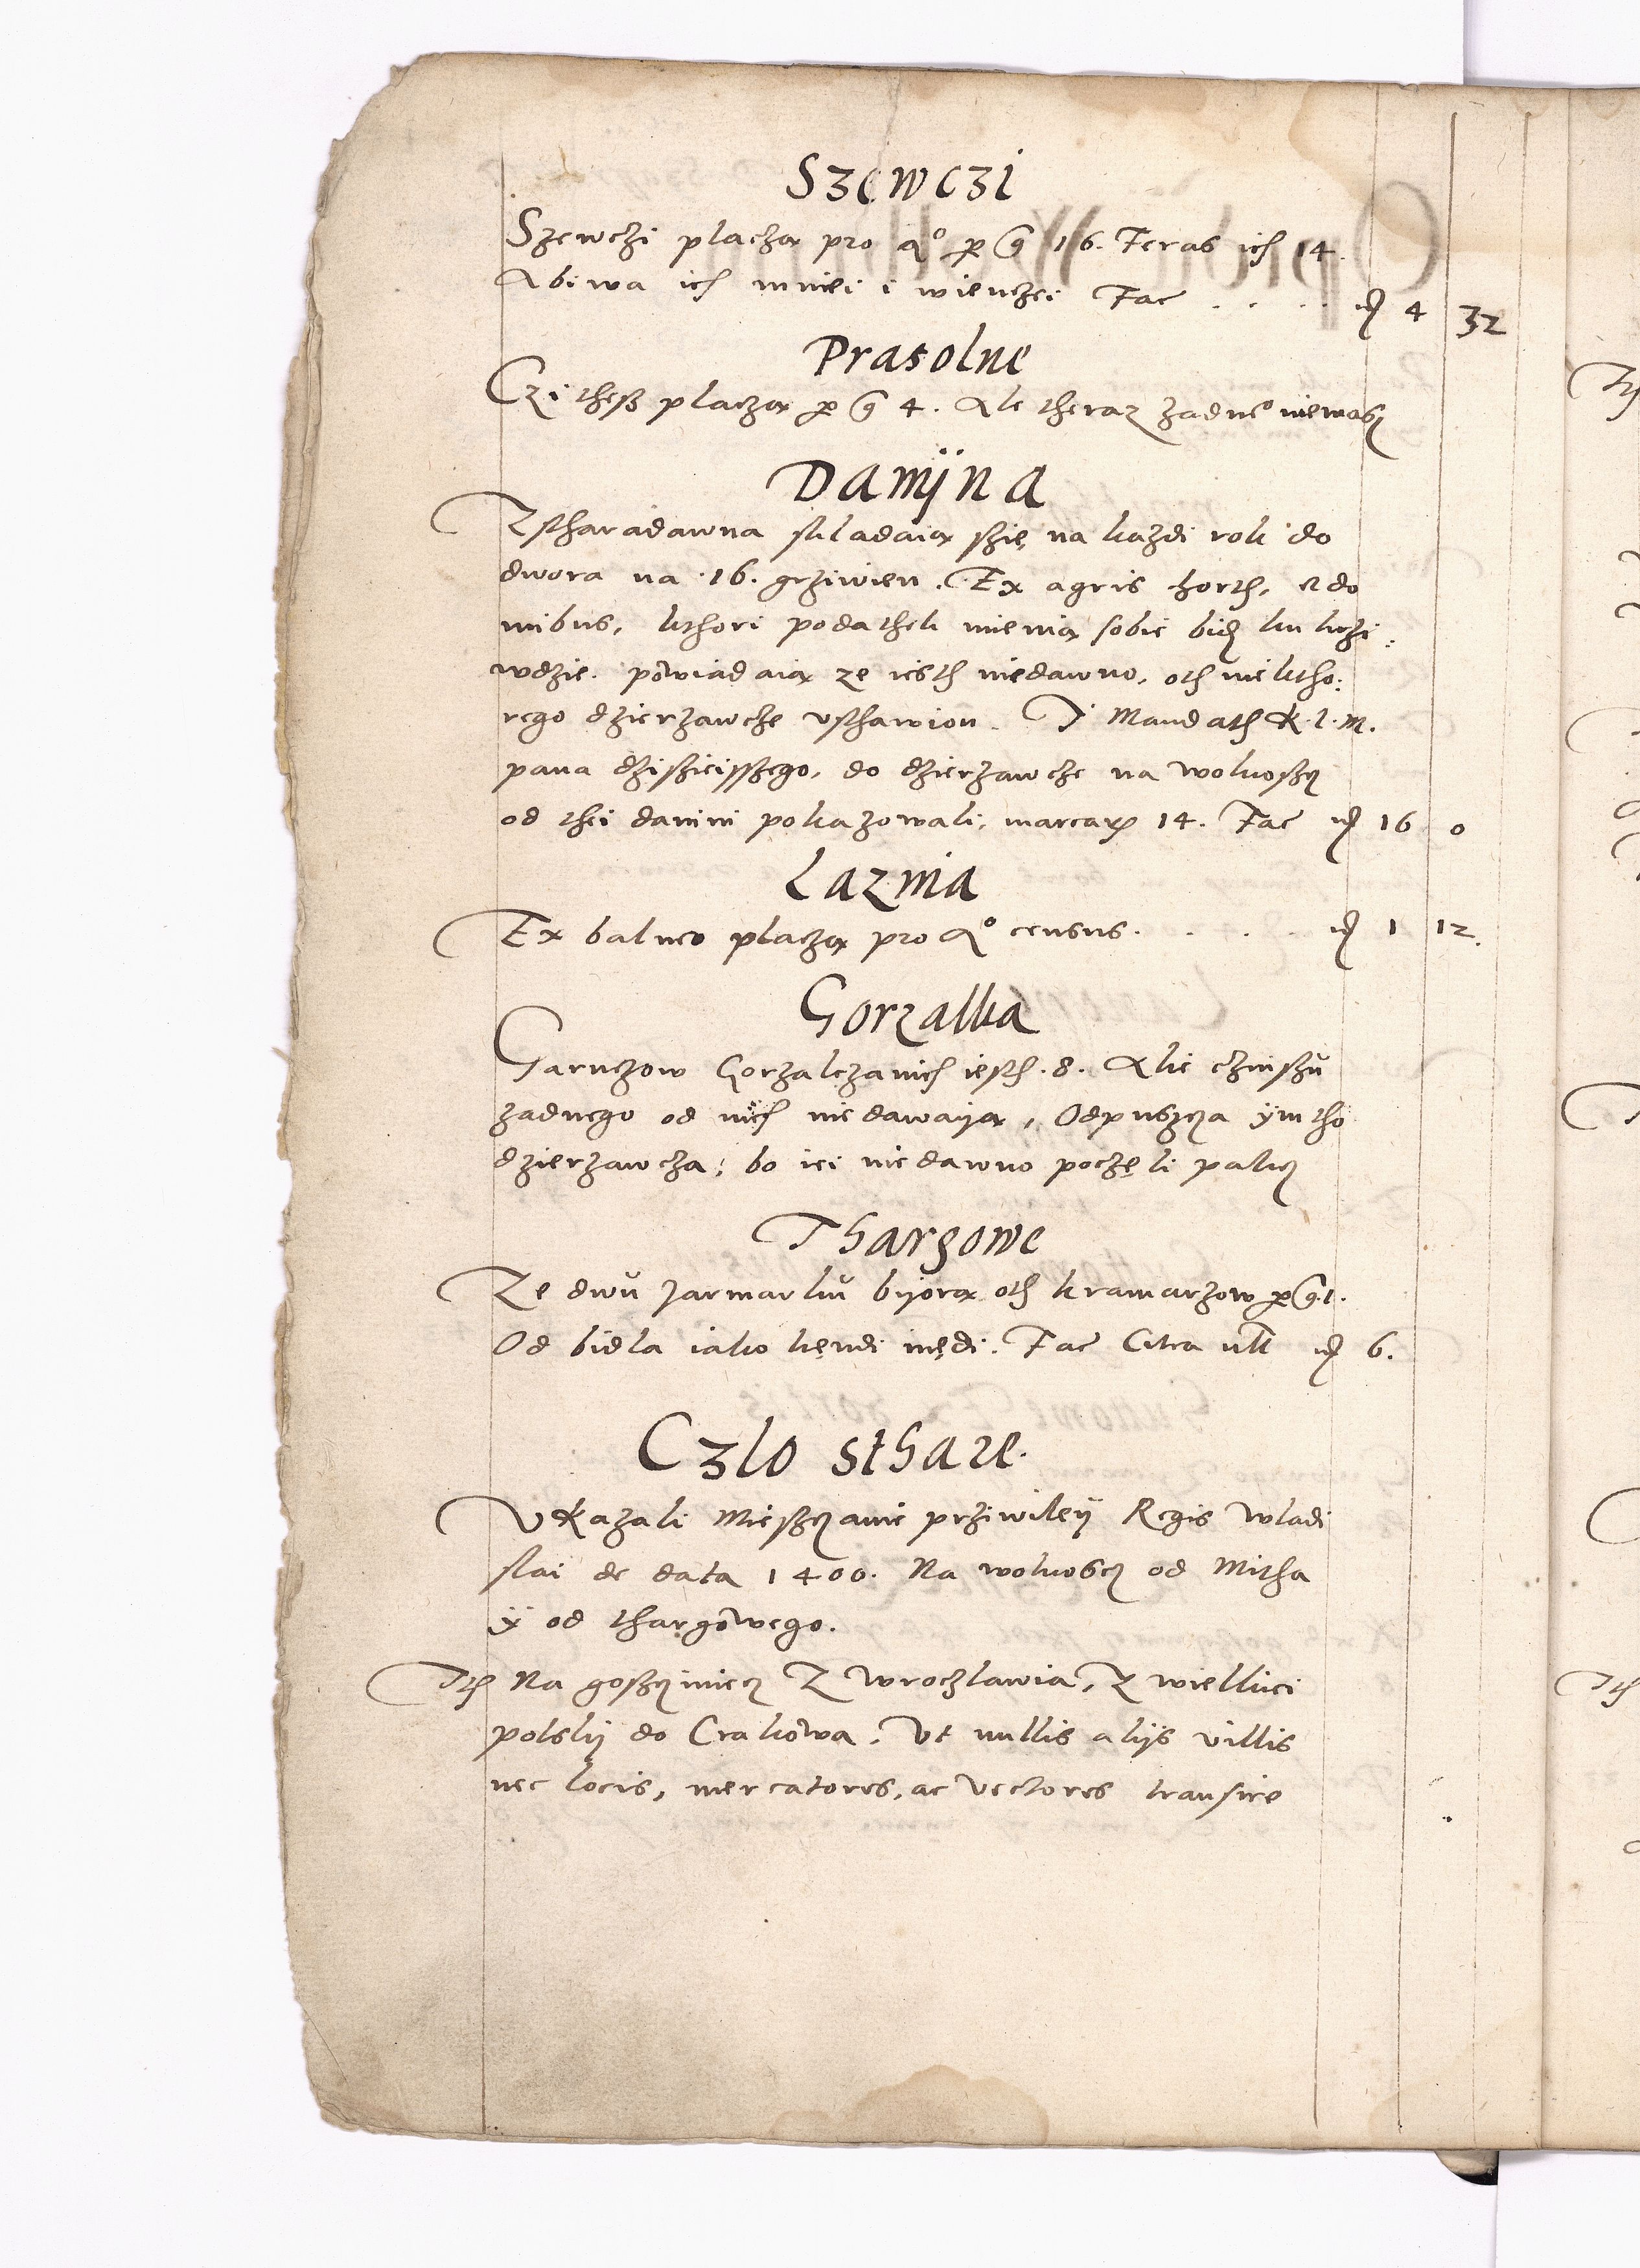 Szewczi
Szewczi placzą pro ao per g 16. Teras ich 14.
Abiwa ich mniei i wienczei Fac . . . . 4 32
Prasolne
Czi thesz placzą per g 4. Ale theraz zadneo niemasz
Damÿna
Zstharadawna skladaią szię na kazdi rok do
dwora na 16. grziwien. Ex agris horth. et do
mibus, kthori podathek mienią sobie bidz ku krzi:
wdzie. powiadaią ze iesth niedawno, oth niektho:
rego dzierzawcze vsthawion. I Mandath K. I. M.
pana dzisieisszego, do dzierzawcze na wolnoscz
od thei danini pokazowali, marcarum 14. Fac 16 0
Laznia
Ex balneo placzą pro ao census. . . . 1 12.
Gorzalka
Garnczow Gorzalczanich iesth. 8. Alie czinszŭ
zadnego od nich nie dawaiją, Odpuszcza ÿm tho
dzierzawcza, bo iei nie dawno poczęli palicz
Thargowe
Ze dwŭ Jarmarkŭ bijorą oth kramarzow per g 1.
Od bidla iako kęndi indi. Fac Citra 6.
Czlo sthare.
Vkazali Miesczanie prziwileÿ Regis Wladi
slai de data 1400. Na wolnoscz od Mitha
ÿ od thargowego.
Ith Na goscziniecz Z Wroczlawia, Z wielkiei
polskÿ do Crakowa. Vt nullis alijs villis
nec locis, mercatores, ac vectores transire